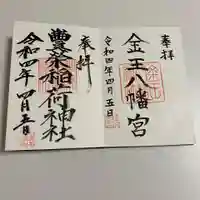 奉拝
金王八幡宮
令和四年四月五日
奉拝
豊栄稲荷神社
令和四年四月五日